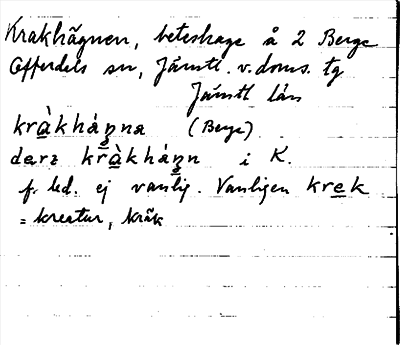 Krakhägnen, beteshage å 2 Berge
Offerdals sn, Jämtl. v. doms. tg
Jämtl län
kràkháŋna (Berge)
darz kràkháŋn i K.
f. led. ej vanlig. Vanligen krek
= kreatur, kräk